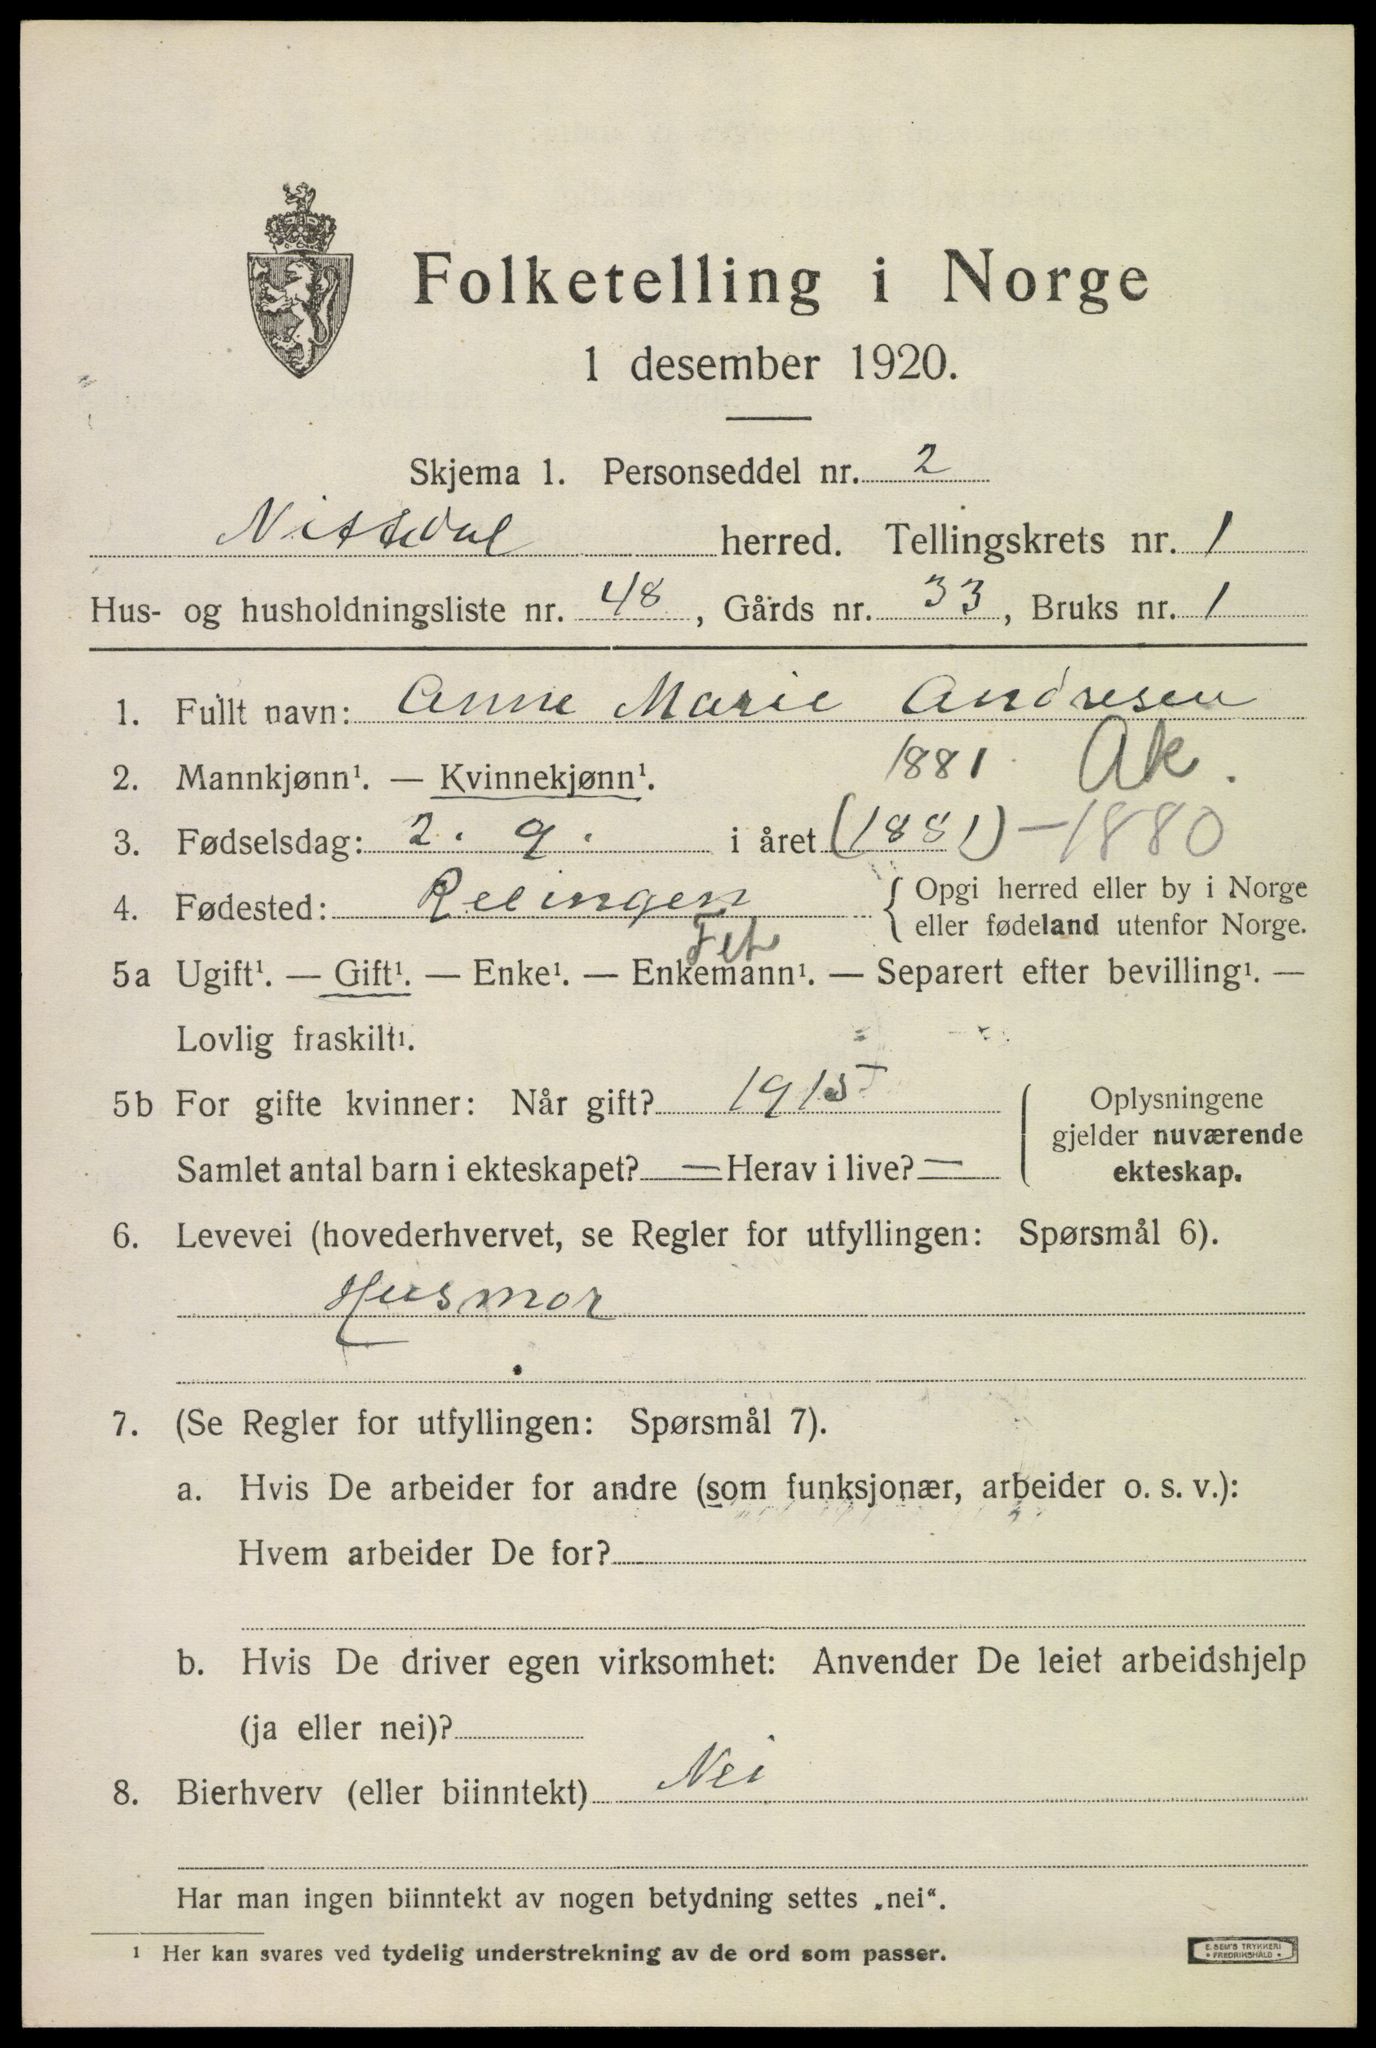 Folketelling i Norge
1 desember 1920.
Skjema 1. Personseddel nr. 2
Nittedal herred. Tellingskrets nr. 1
Hus- og husholdningsliste nr. 48, Gårds nr. 33, Bruks nr. 1
1. Fullt navn: Anne Marie Andresen
2. Mannkjønn¹. — Kvinnekjønn¹. 1881 Ak.
3. Fødselsdag: 2. 9. i året (1881) - 1880
4. Fødested: Relingen { Opgi herred eller by i Norge
eller fødeland utenfor Norge.
Fet
5a Ugift¹. — Gift¹. — Enke¹. — Enkemann¹. — Separert efter bevilling¹. —
Lovlig fraskilt¹.
5b For gifte kvinner: Når gift? 1915
Samlet antal barn i ekteskapet? = Herav i live? =
Oplysningene
gjelder nuværende
ekteskap.
6. Levevei (hovederhvervet, se Regler for utfyllingen: Spørsmål 6).
Husmor
7. (Se Regler for utfyllingen: Spørsmål 7).
a. Hvis De arbeider for andre (som funksjonær, arbeider o. s. v.):
Hvem arbeider De for?
b. Hvis De driver egen virksomhet: Anvender De leiet arbeidshjelp
(ja eller nei)?
8. Bierhverv (eller biinntekt) Nei
Har man ingen biinntekt av nogen betydning settes „nei“.
¹ Her kan svares ved tydelig understrekning av de ord som passer.
E. SEM'S TRYKKERI
• FREDRIKSHALD •